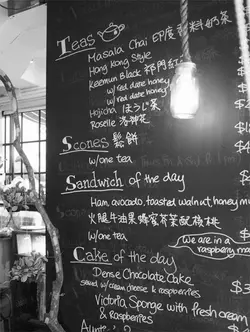 Teas
Masala Chai 印度香料奶茶
Hong Kong Style
Keemun Black 祁門紅
w/red date honey
w/red date honey
Hojicha ほうじ茶
Roselle 洛神花
Scones 鬆餅
w/one tea
Sandwich of the day
Ham, avocado, toasted walnut, honey mu
火腿牛油果蜂蜜芥茉配核桃
w/one tea
(we are in a
raspberry ma
Cake of the day
Dense Chocolate Cake
served w/cream cheese & raspberries
Victoria Sponge with fresh cream
& raspberries